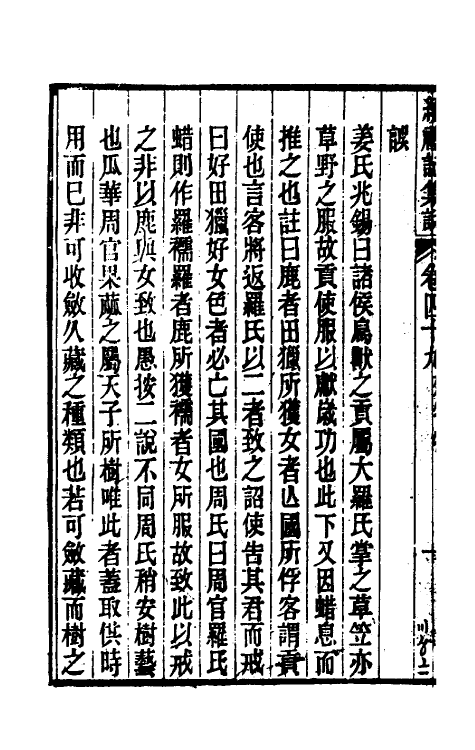 續禮記集說　卷四十九
誤
姜氏兆錫曰諸侯鳥獸之貢屬大羅氏掌之草笠亦
草野之服故貢使服以獻歲功也此下又因蜡息而
推之也註曰鹿者田獵所獲女者亾國所俘客謂貢
使也言客將返羅氏以二者致之詔使告其君而戒
曰好田獵好女色者必亡其國也周氏曰周官羅氏
蜡則作羅襦羅者鹿所獲襦者女所服故致此以戒
之非以鹿與女致也愚按二說不同周氏稍安樹藝
也瓜華周官果蓏之屬天子所樹唯此者蓋取供時
用而已非可收斂久藏之種類也若可斂藏而樹之